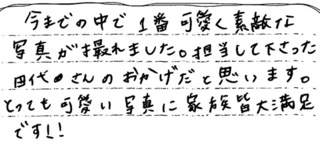 今までの中で1番可愛く素敵な
写真が撮れました。担当して下さった
田代さんのおかげだと思います。
とっても可愛い写真に家族皆大満足
です!!